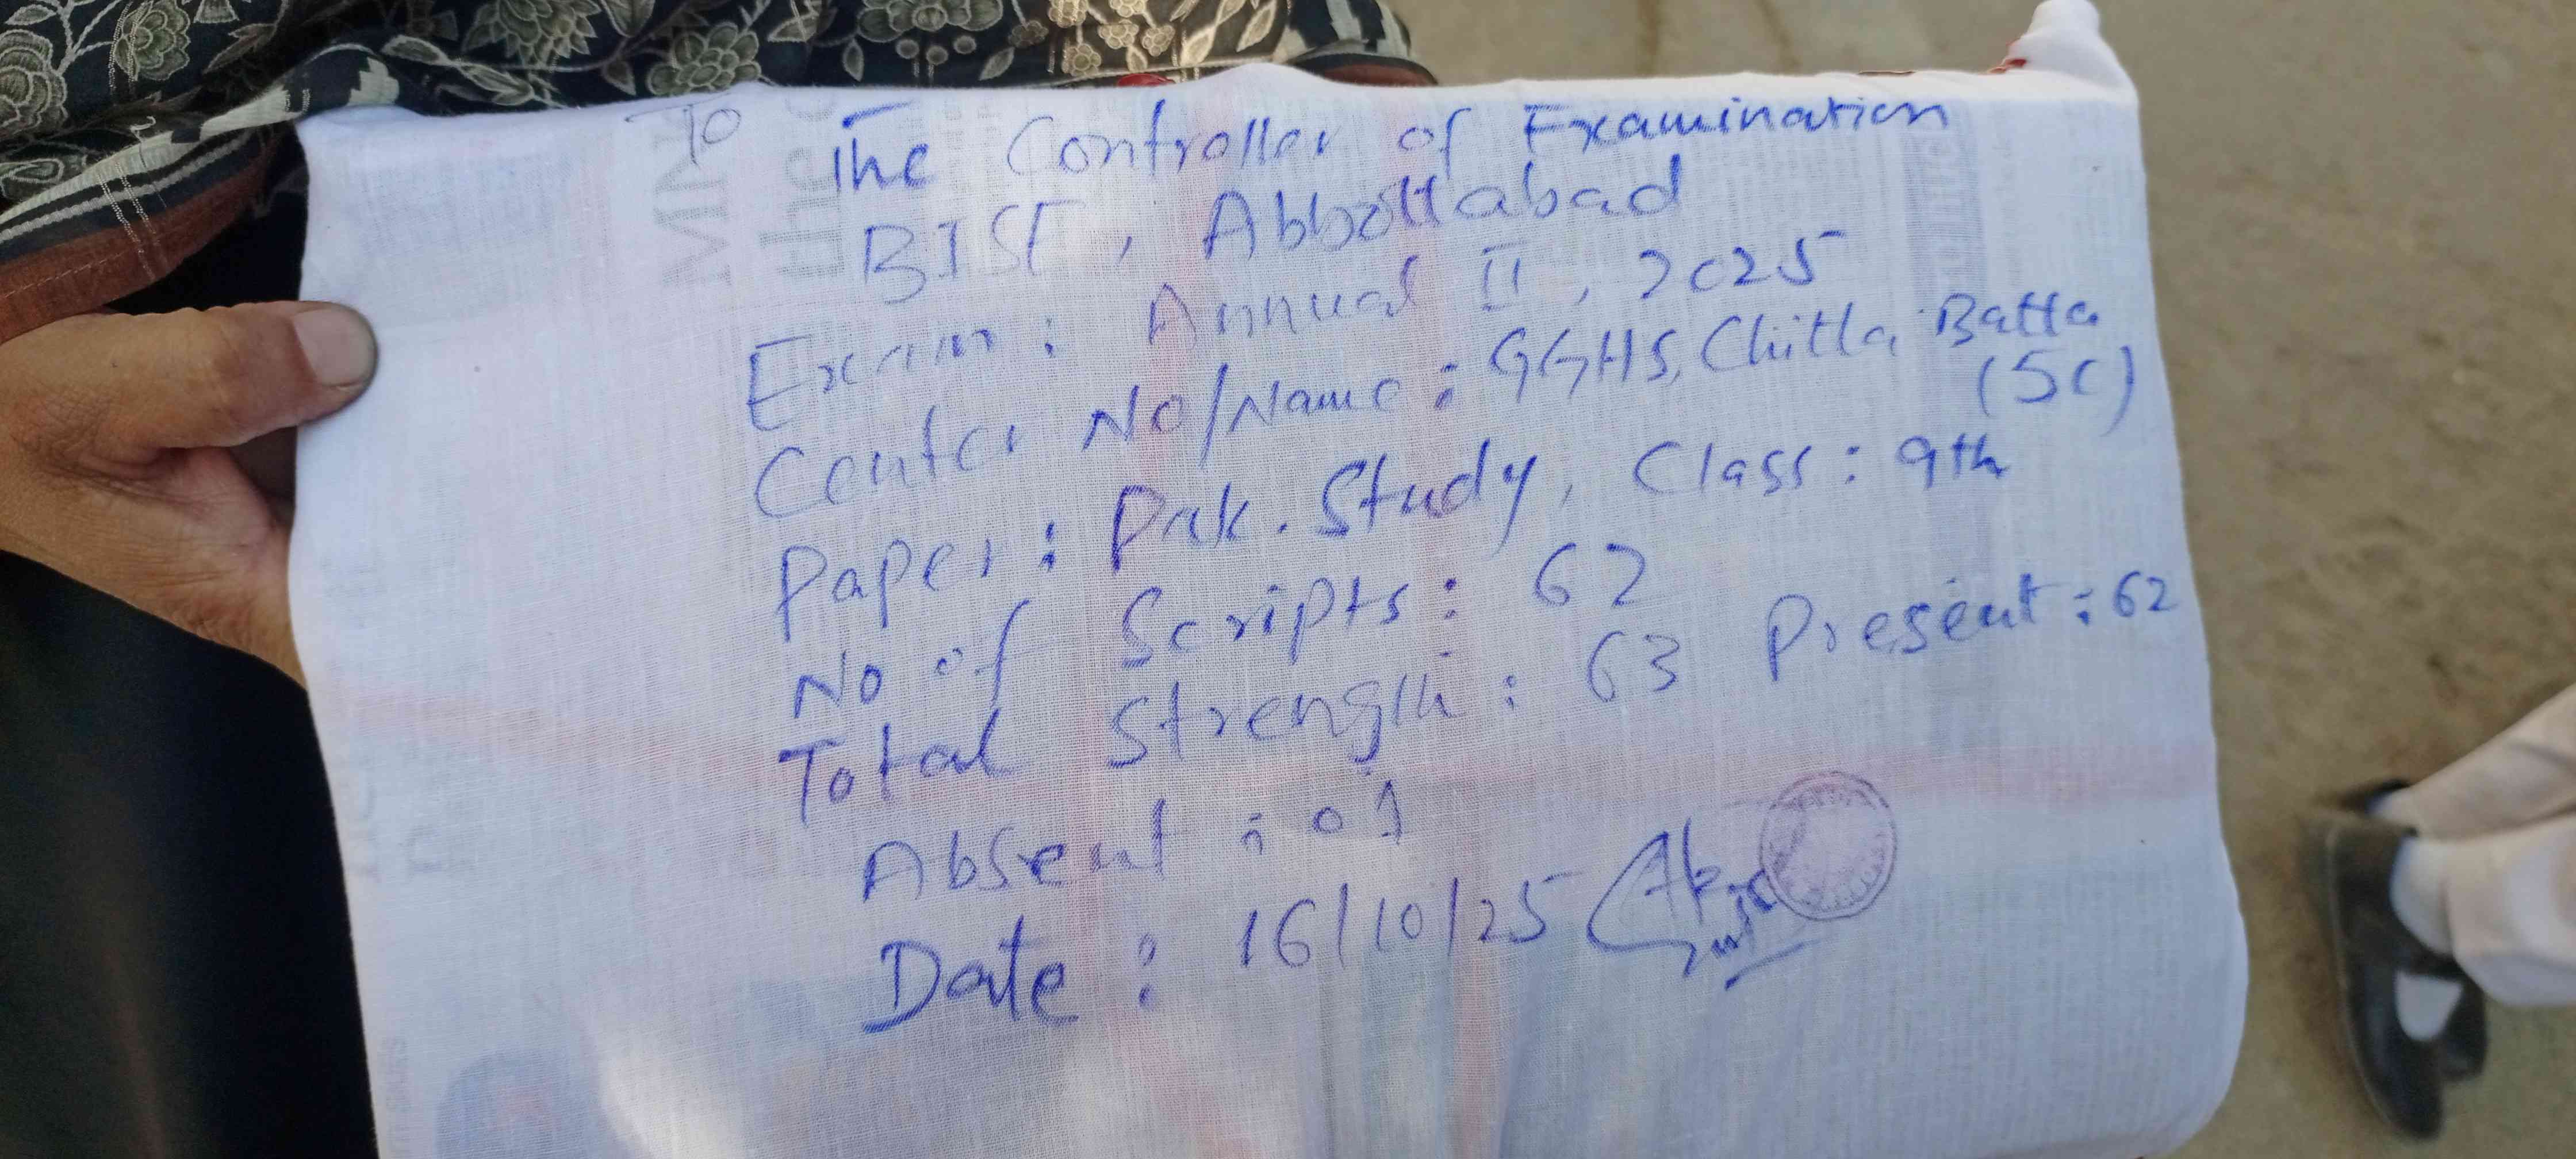 To
The Controller of Examination
BISE, Abbottabad
Exam: Annual II, 2025
Center No/Name: GGHS, Chitta Batta
(SC)
Paper: Pak. Study, Class: 9th
No of Scripts: 62
Total Strength: 63 Present: 62
Absent: 01
Date: 16/10/25